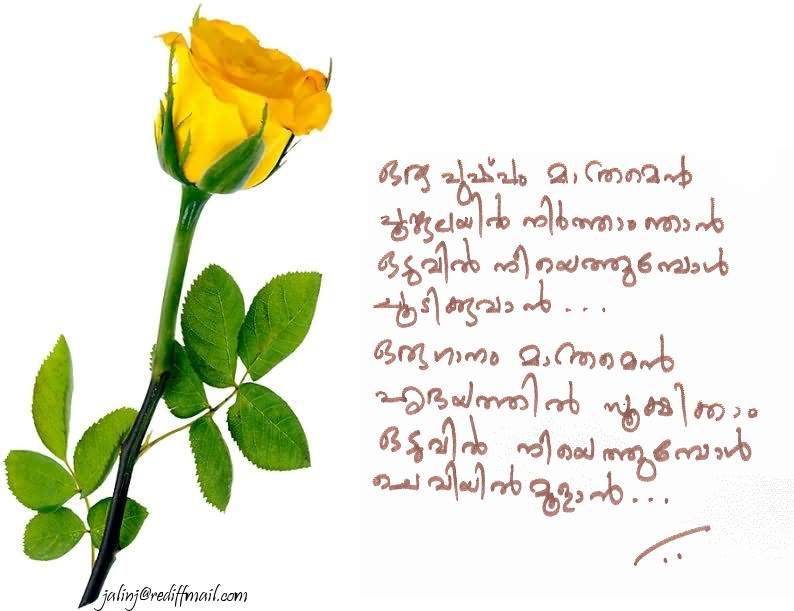 ഒരു പുഷ്പം മാത്രമെൻ
പൂങ്കുലയിൽ നിർത്താം ഞാൻ
ഒടുവിൽ നീയെത്തുമ്പോൾ
ചൂടിക്കുവാൻ...
ഒരു ഗാനം മാത്രമെൻ
ഹൃദയത്തിൽ സൂക്ഷിക്കാം
ഒടുവിൽ നീയെത്തുമ്പോൾ
ചെവിയിൽ മൂളാൻ...
jalinj@rediffmail.com